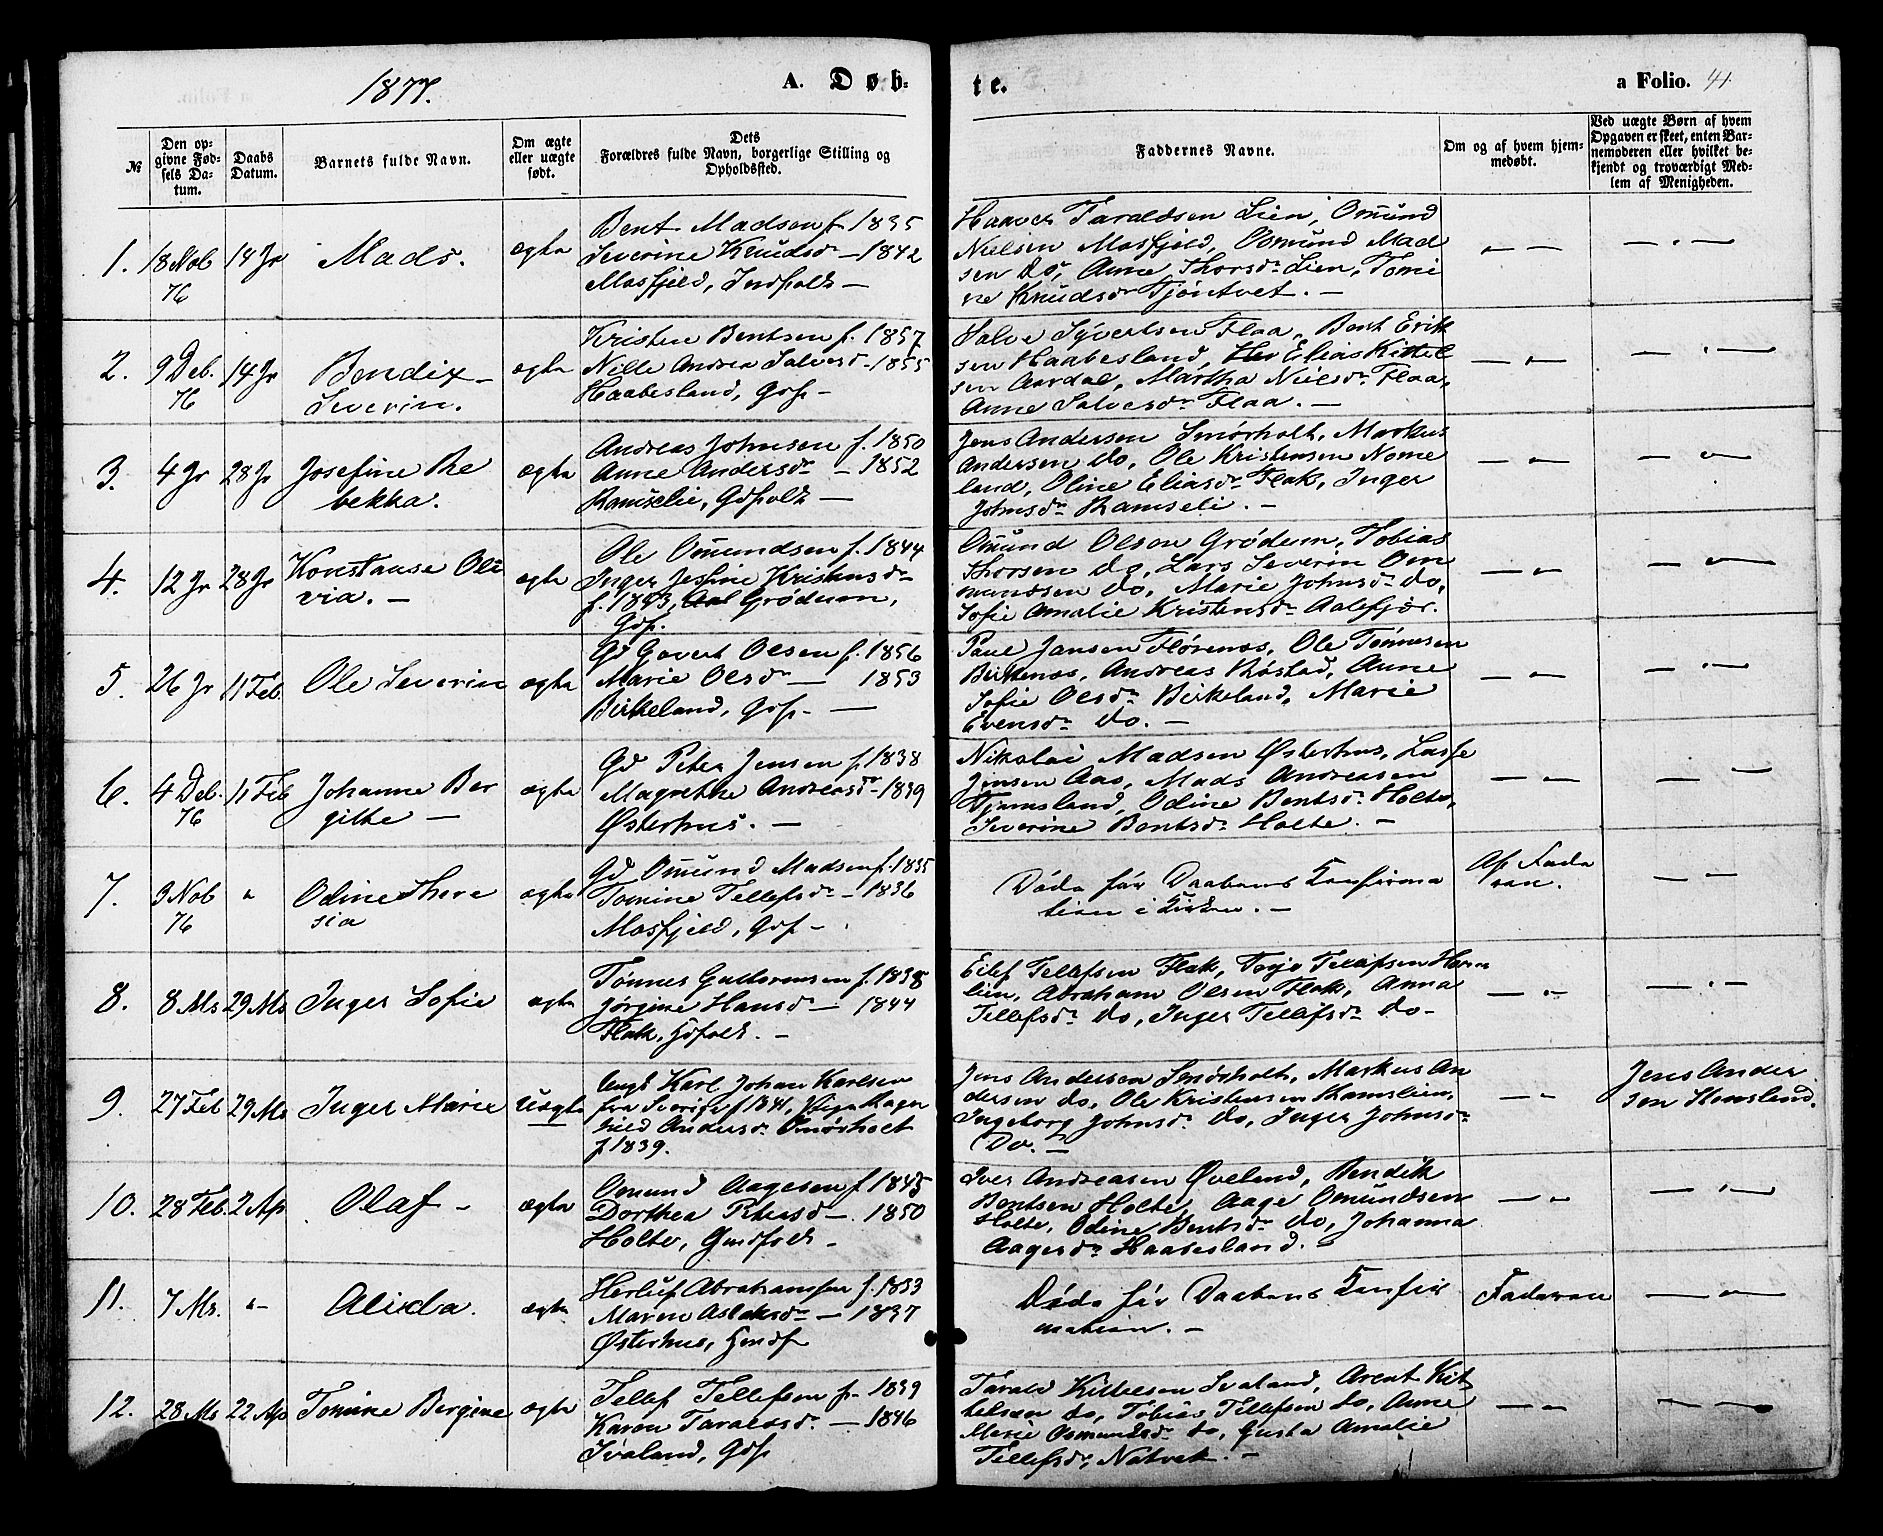 1877.
A. Døb-
te.
a Folio. 41
№
Den op-
givne Fød-
sels Da-
tum.
Daabs
Datum.
Barnets fulde Navn.
Om ægte
eller uægte
født.
Dets
Forældres fulde Navn, borgerlige Stilling og
Opholdssted.
Faddernes Navne.
Om og af hvem hjem-
medøbt.
Ved uægte Børn af hvem
Opgaven er skeet, enten Bar-
nemoderen eller hvilket be-
kjendt og troværdigt Med-
lem af Menigheden.
1.
18 Nob
76
14 Jr
Mads.
ægta
Bent Madsen f. 1835
Severine Knudsdr — 1842
Mosfjeld, Indfolk —
Taraldsen Lien, Omund
Nielsen Mosfjeld, Osmund Mad
sen do, Anne Thorsdr Lien, Tomi
ne Knudsdr Tjöntvet. —
2.
9 Deb.
76
14 Jr
Bendix
Severin.
ægta
Kristen Bentsen f. 1857
Nille Andrea Salvesdr - 1855
Haabesland, Gdf —
Salve Syvertsen Flaa, Bent Erik
sen Haabesland, Elias Kittel
sen Aardal, Märtha Nielsdr Flaa,
Anne Salvesdr Flaa. —
3.
4 Jr
28 Jr
Josefine Re
bekka.
ægta
Andreas Johnsen f. 1850
Anne Andersdr — 1852
Ramselie, Gdfolk —
Jens Andersen Smörholt, Markus
Andersen do, Ole Kristensen Nome
land, Oline Eliasdr Flak, Inger
Johnsdr Ramseli. —
4.
12 Jr
28 Jr
Konstanse Oli
via. —
ægta
Ole Omundsen f. 1844
Inger Jesfine Kristensdr
f. 1843, Grödum,
Gdf.
Omund Olsen Grödum, Tobias
Thorsen do, Lars Severin Om
mundsen do, Marie Johnsdr do,
Sofie Amalie Kristensdr Aalefjær.
5.
26 Jr
11 Feb.
Ole Severin
ægta
Gd Govert Olsen f. 1856
Marie Olsdr — 1853
Birkeland, Gdf. —
Paul Jansen Flørenes, Ole Tønnesen
Birkenes, Andreas Røstad, Anne
Sofie Olsdr Birkeland, Marie
Evensdr do. —
6.
4 Deb.
76
11 Feb
Johanne Ber
gitte —
ægta
Gd Peter Jensen f. 1838
Magrethe Andreasdr - 1839
Østerhus. —
Nikolai Madsen Østerhus, Lasse
Jensen Aas, Mads Andreasen
Tjomsland, Odine Bentsdr Holte,
Severine Bentsdr Holte. —
7.
9 Nob
76
"
Odine There
sia
ægta
Gd Omund Madsen f. 1835
Tomine Tellefsdr - 1836
Mosfjeld, Gdf —
Döda för Daabens Konfirma
tion i Kirken. —
Af Fada
ren.
8.
8 Ms
29 Ms
Inger Sofie
ægta
Tønnes Guttormsen f. 1838
Jørgine Hansd — 1844
Flak, Gdfolk. —
Eilef Tellefsen Flak, Terje Tellefsen
lien, Abraham Olsen Flak, Anna
Tellefsdr do, Inger Tellefsdr do -
9.
27 Feb
29 Ms
Inger Marie
Uægta
Ungk Karl Johan Karlsen
fra Sverige f 1841, Pige Ragn
hild Andersdr Smörholt
f 1839.
Jens Andersen Smörholt, Markus An
dersen do, Ole Kristensen Ramslien,
Ingeborg Johnsdr do, Inger Johnsdr
Do. —
Jens Ander
sen
10.
28 Feb.
2 Ap
Olaf -
ægta
Omund Aagesen f 1845
Dorthea Petersd - 1850
Holte, Gmdfolk -
Iver Andreasen Øveland, Bendik
Bentsen Holte, Aage Omundsen
Holte, Odine Bentsdr do, Johanna
Aagesdr Haabesland.
11.
7 Ms.
"-
Alida.
ægta
Herluf Abrahamsen f. 1833
Maren Aslaksdr — 1837
Østerhus, Gmdf
Döda för Daabens Konfir
mation. —
Faderen
12.
28 Ms
22 Ap
Tomine Bergine
ægta
Tellef Tellefsen f. 1839
Karen Taraldsdr — 1846
Svaland, Gdf
Tarald Kittelsen Svaland, Arent Kit
telsen do, Tobias Tellefsen do, Anne
Marie Osmundsdr do, Gusta Amalie
Tellefsdr Natvek. —